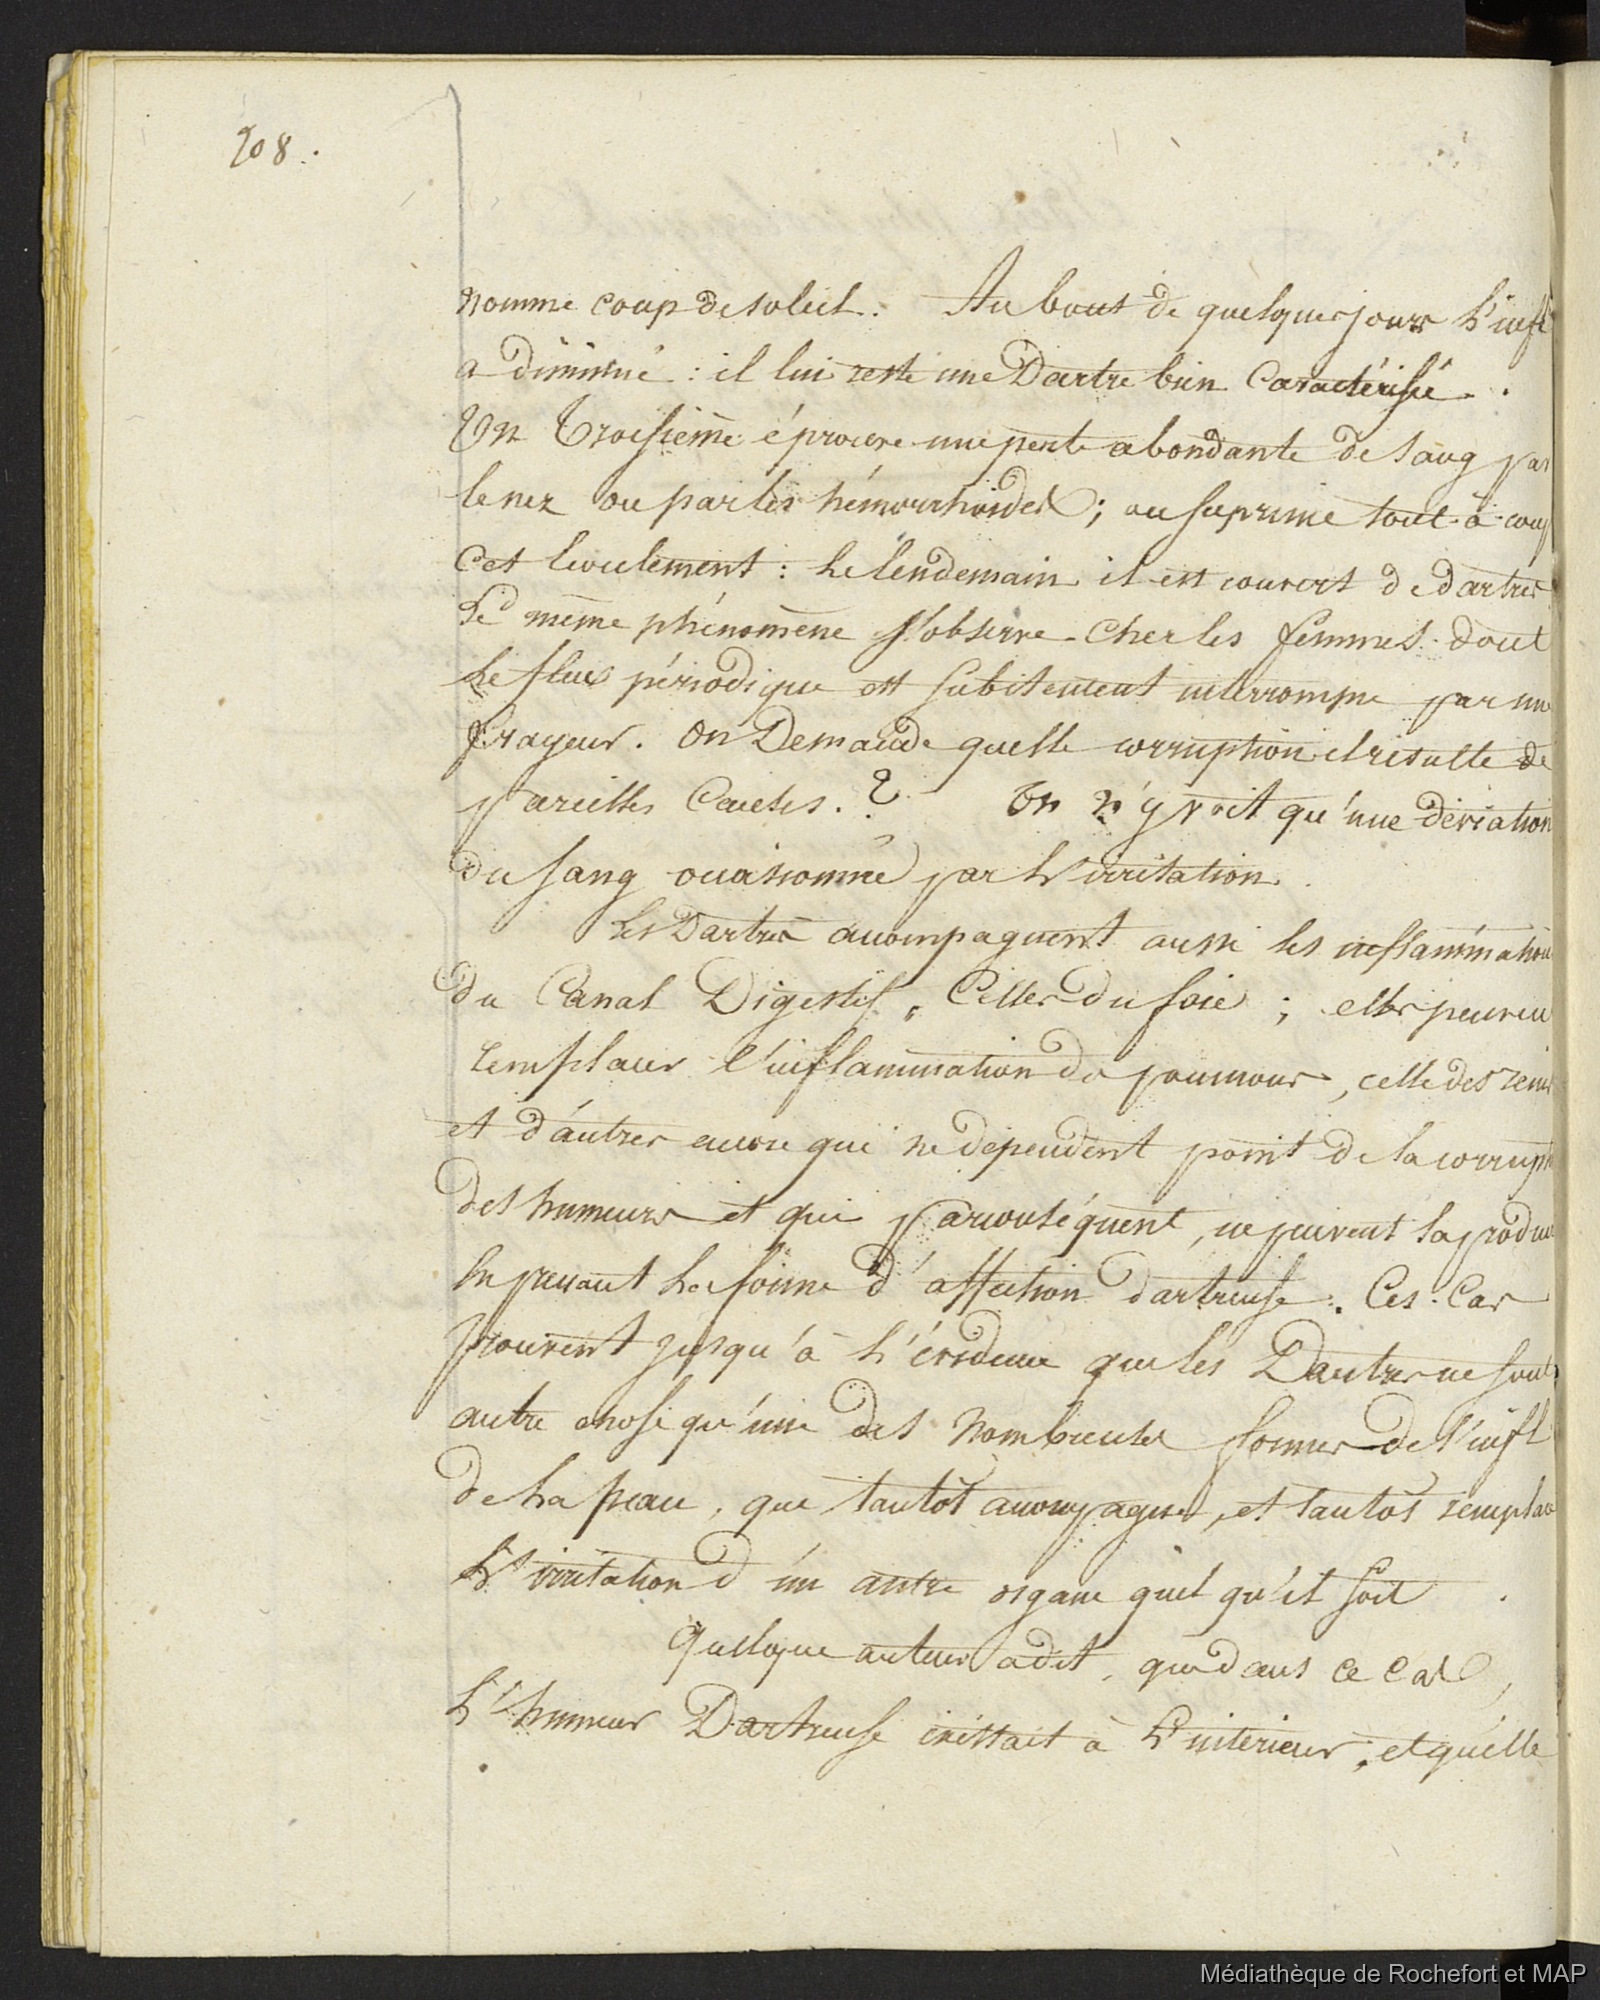 208.
nomme coup de soleil. Au bout de quelques jours l'infl
a diminué : il lui reste une Dartre bien Caractérisée.
Un Troisième éprouve une perte abondante de sang par
le nez ou par les hémorrhoïdes ; on suprime tout-à-coup
cet écoulement : le lendemain il est couvert de dartres.
Le même phénomène s'observe chez les femmes dont
le flux périodique est subitement interrompu par une
frayeur. On Demande quelle corruption il résulte de
pareilles Causes. ? On n'y voit qu'une déviation
du sang occasionnée par l'irritation.
Les Dartres accompagnent aussi les inflammation
du Canal Digestif, Celles du foie ; elles peuven
remplacer l'inflammation du poumons, celle des reins
et d'autres encore qui ne dépendent point de la corrupt
des humeurs et qui par conséquent, ne peuvent la produi
en prenant la forme d'affection dartreuse. Ces Cas
prouvent jusqu'à l'évidence que les Dartres ne sont
autre chose qu'une des nombreuses formes de l'infl
de la peau, que tantôt accompagne, et tantôt remplace
l'irritation d'un autre organe quel qu'il soit.
Quelque auteur a dit, que dans ce cas,
l'humeur Dartreuse existait à l'intérieur, et qu'elle
Médiathèque de Rochefort et MAP